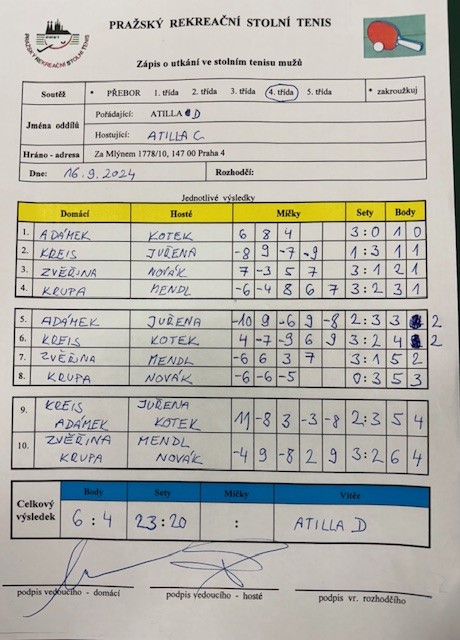 PRAŽSKÝ REKREAČNÍ STOLNÍ TENIS
PRST
PRAŽSKÝ REKREAČNÍ STOLNÍ TENIS
Zápis o utkání ve stolním tenisu mužů
Soutěž * PŘEBOR 1. třída 2. třída 3. třída 4. třída 5. třída * zakroužkuj
Jména oddílů
Pořádající: ATILLA D
Hostující: ATILLA C
Hráno - adresa Za Mlýnem 1778/10, 147 00 Praha 4
Dne: 16.9.2024 Rozhodčí:
Jednotlivé výsledky
Domácí Hosté Míčky Sety Body
1. ADÁMEK KOTEK 6 8 4 3:0 1 0
2. KREIS JUŘENA -8 9 -7 -9 1:3 1 1
3. ZVĚŘINA NOVÁK 7 -3 5 7 3:1 2 1
4. KRUPA MENDL -6 -4 8 6 7 3:2 3 1
5. ADÁMEK JUŘENA -10 9 -6 9 -8 2:3 3 2
6. KREIS KOTEK 4 -7 -9 6 9 3:2 4 2
7. ZVĚŘINA MENDL -6 6 3 7 3:1 5 2
8. KRUPA NOVÁK -6 -6 -5 0:3 5 3
9. KREIS JUŘENA
ADÁMEK KOTEK 11 -8 3 -3 -8 2:3 5 4
10. ZVĚŘINA MENDL
KRUPA NOVÁK -4 9 -8 2 9 3:2 6 4
Celkový výsledek
Body Sety Míčky Vítěz
6:4 23:20 : ATILLA D
podpis vedoucího - domácí podpis vedoucího - hosté podpis vr. rozhodčího